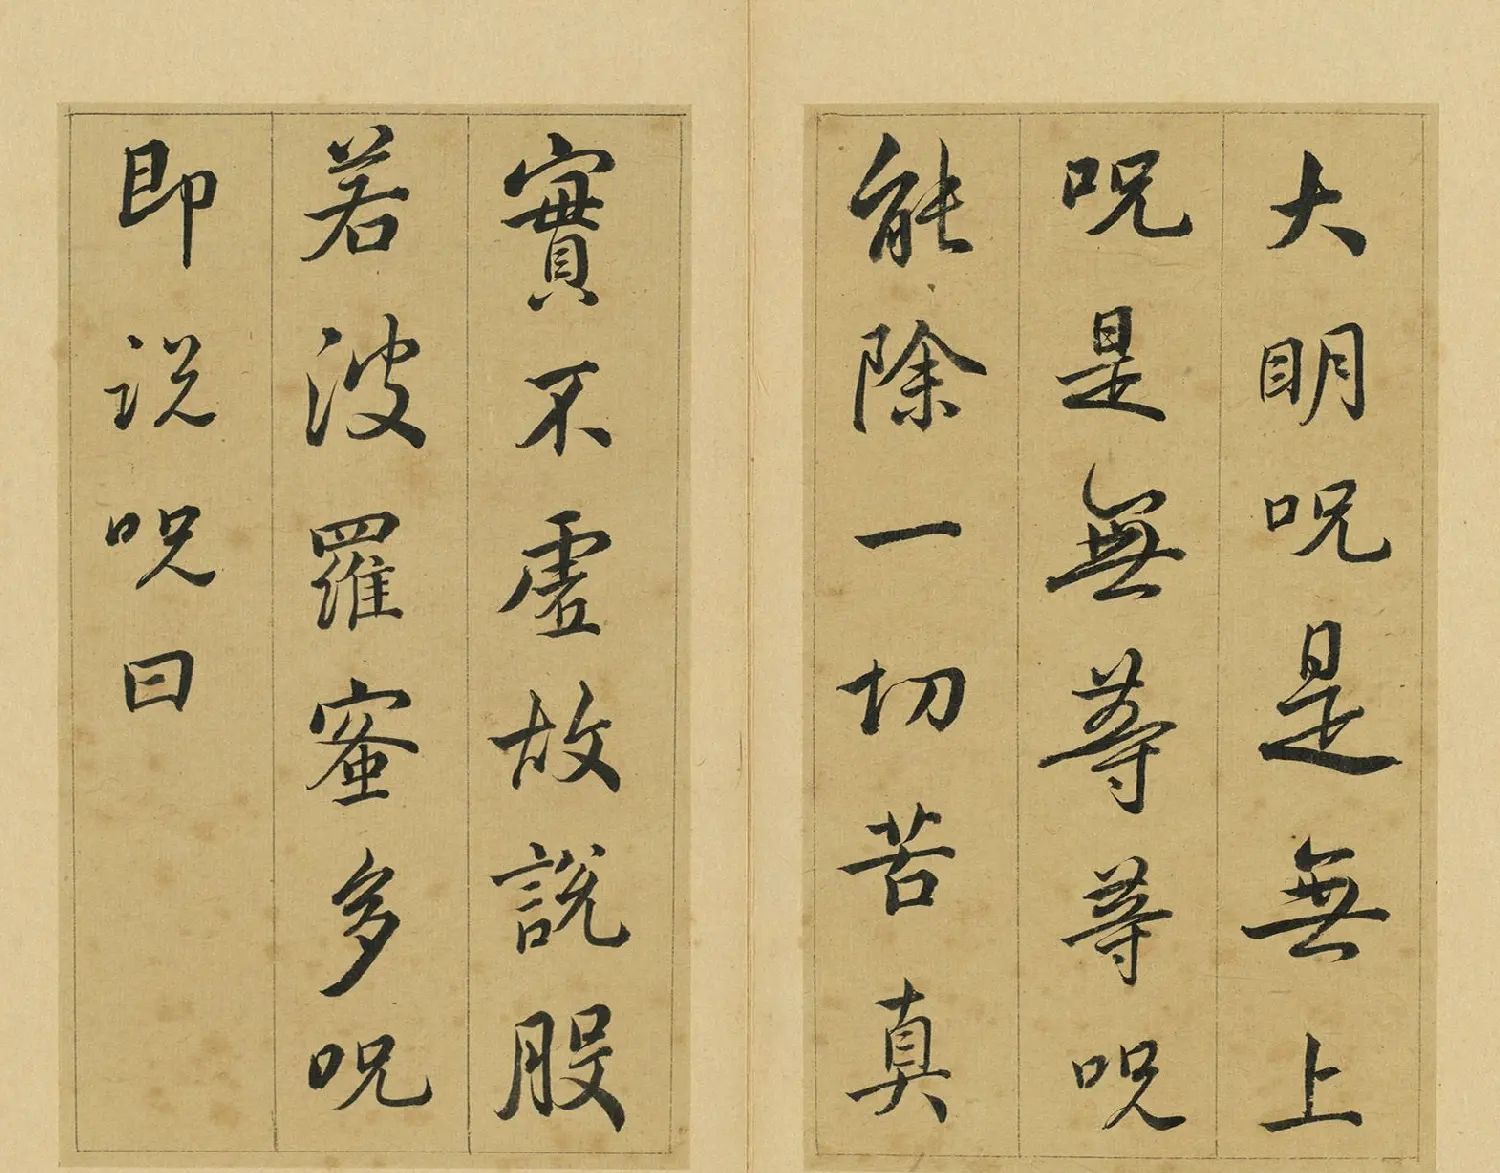 大明咒是無上
咒是無等等咒
能除一切苦真
實不虛故說般
若波羅蜜多咒
即说咒曰